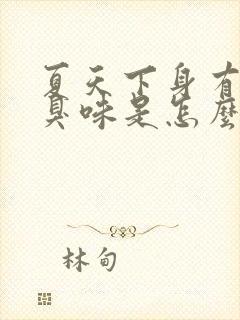 夏天下身有
臭味是怎麼
林甸